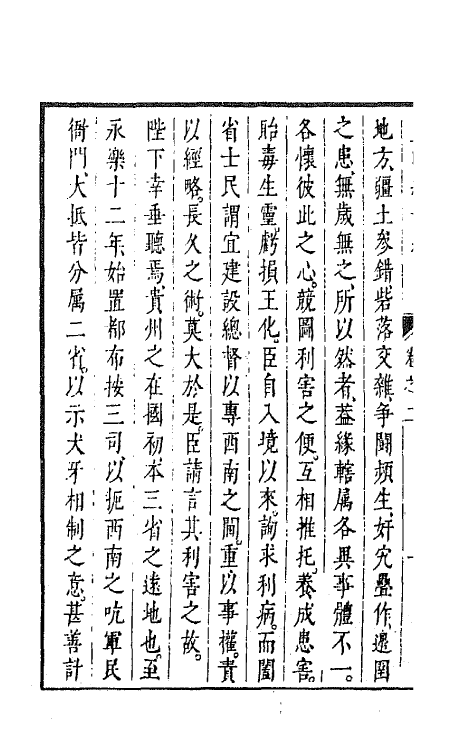 卷之二
地方疆土參錯砦落交雜爭鬭頻生奸宄疊作邊圉
之患無歲無之所以然者葢緣轄属各異事體不一
各懷彼此之心競圖利害之便互相推托養成患害
貽毒生靈虧損王化臣自入境以來詢求利病而闔
省士民謂宜建設總督以專西南之閫重以事權責
以經略長久之術莫大於是臣請言其利害之故
陛下幸垂聽焉貴州之在國初本三省之遠地也至
永樂十二年始置都布按三司以扼西南之吭軍民
衙門大抵皆分属二省以示犬牙相制之意甚善計